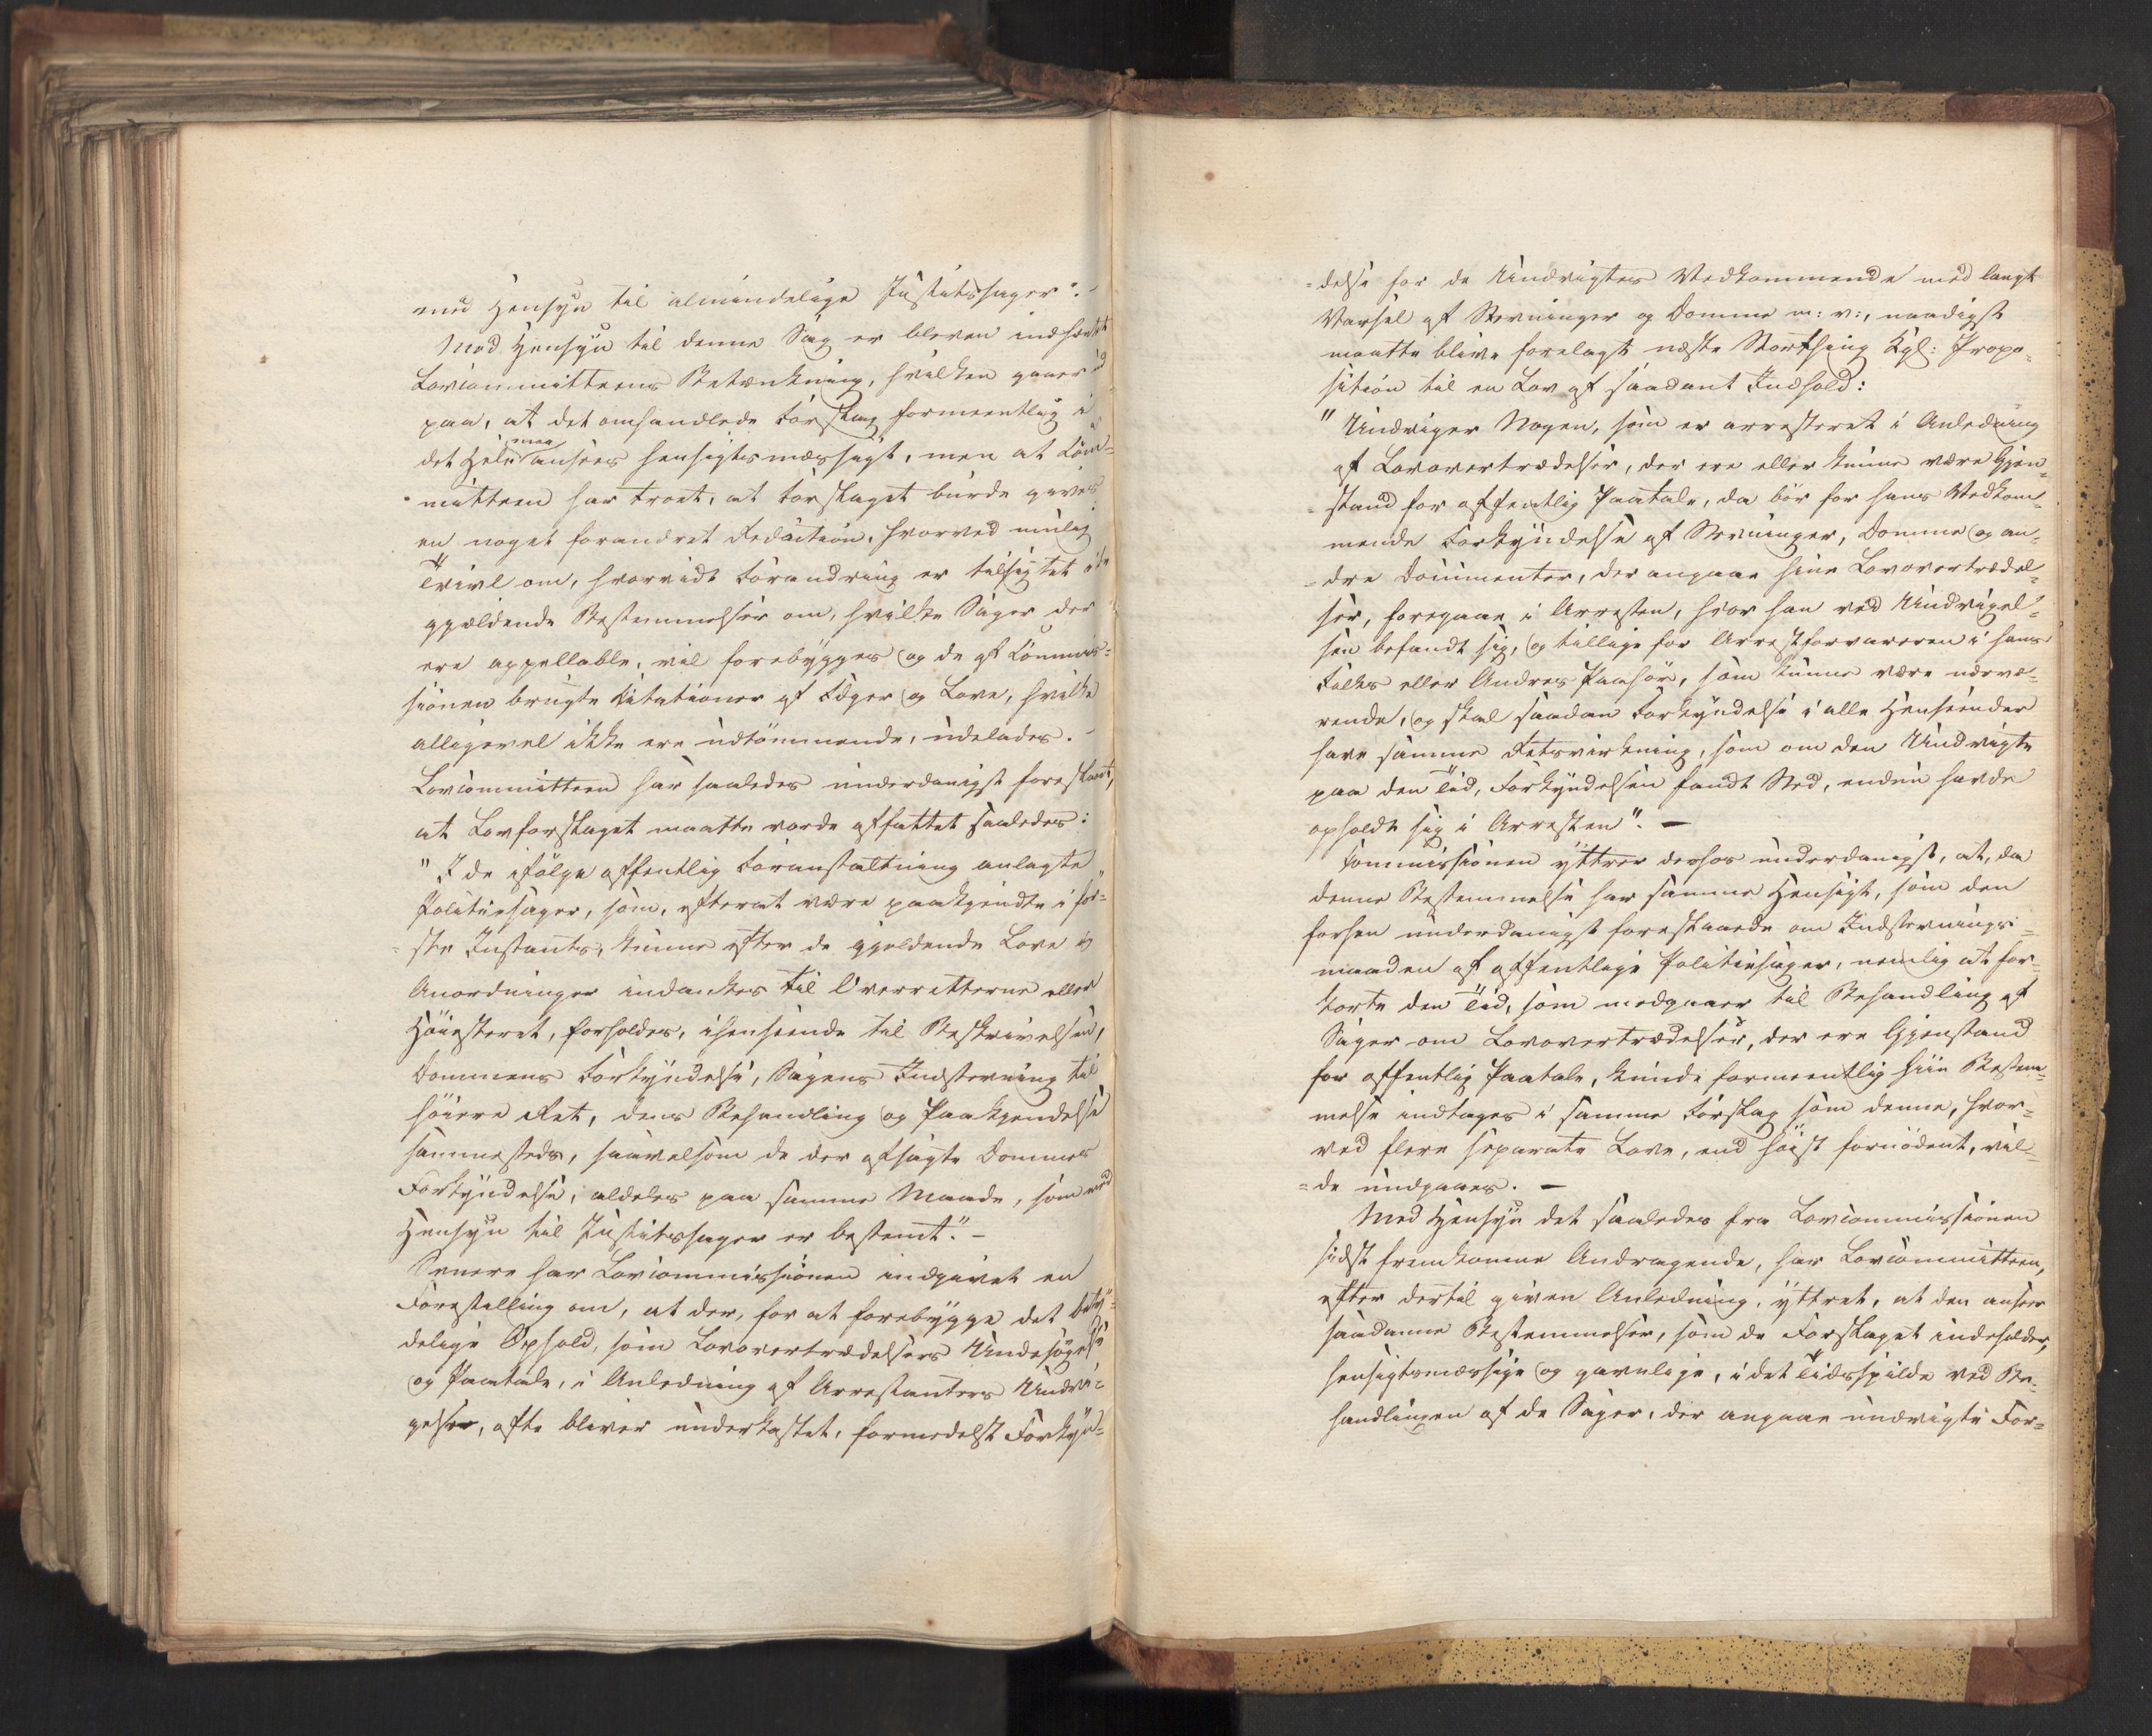 med Hensyn til almindelige Justitssager". -
Med Hensyn til denne Sag er bleven indhentet
Lovcommitteens Betænkning, hvilken gaaer ud
paa, at det omhandlede Forslag formeentlig i
det Hele maa ansees hensigtsmæssigt, men at Com-
mitteen har troet, at Forslaget burde gives
en noget forandret Redaction, hvorved mulig
Tvivl om, hvorvidt Forandring er tilsigtet i de
gjældende Bestemmelser om, hvilke Sager der
ere appellable, vil forebygges og de af Commis-
sionen brugte Citationer af Bøger og Love, hvilke
alligevel ikke ere udtömmende, udelades. -
Lovcommitteen har saaledes underdanigst foreslaaet,
at Lovforslaget maatte vorde affattet saaledes:
"I de ifölge offentlig Foranstaltning anlagte
Politiesager, som, efterat være paakjendte i för-
ste Instants, kunne efter de gjeldende Love og
Anordninger indankes til Overretterne eller
Höiesteret, forholdes, ihenseende til Beskrivelsen,
Dommens Forkyndelse, Sagens Indstevning til
höiere Ret, dens Behandling og Paakjendelse
sammesteds, saavelsom de der afsagte Dommes
Forkyndelse, aldeles paa samme Maade, som med
Hensyn til Justitssager er bestemt". -
Senere har Lovcommissionen indgivet en
Forestilling om, at der, for at forebygge det bety-
delige Ophold, som Lovovertrædelsers Undersögelse
og Paatale, i Anledning af Arrestanters Undvi-
gelser, ofte bliver underkastet, formedelst Forkyn-
delse for de Undvigtes Vedkommende med langt
Varsel af Stevninger og Domme m: v:, naadigst
maatte blive forelagt næste Storthing Kgl: Propo-
sition til en Lov af saadant Indhold:
"Undviger Nogen, som er arresteret i Anledning
af Lovovertrædelser, der ere eller kunne være Gjen-
stand for offentlig Paatale, da bör for hans Vedkom-
mende Forkyndelse af Stevninger, Domme og an-
dre Documenter, der angaae hine Lovovertrædel-
ser, foregaae i Arresten, hvor han ved Undvigel-
sen befandt sig, og tillige for Arrestforvareren i hans
Folks eller Andres Paahör, som kunne være nærvæ-
rende, og skal saadan Forkyndelse i alle Henseender
have samme Retsvirkning, som om den Undvigte
paa den Tid, Forkyndelsen fandt Sted, endnu havde
opholdt sig i Arresten". -
Commissionen yttrer derhos underdanigst, at, da
denne Bestemmelse har samme Hensigt, som den
forhen underdanigst foreslaaede om Indstevnings-
maaden af offentlige Politiesager, nemlig at for-
korte den Tid, som medgaaer til Behandling af
Sager om Lovovertrædelser, der ere Gjenstand
for offentlig Paatale, kunde formeentlig hiin Bestem-
melse indtages i samme Forslag som denne, hvor-
ved flere separate Love, end höist fornödent, vil-
de undgaaes. -
Med Hensyn det saaledes fra Lovcommissionen
sidst fremkomne Andragende, har Lovcommitteen,
efter dertil given Anledning, yttret, at den anseer
saadanne Bestemmelser, som de Forslaget indeholder,
hensigtsmæssige og gavnlige, i det Tidsspilde ved Be-
handlingen af de Sager, der angaae undvigte For-